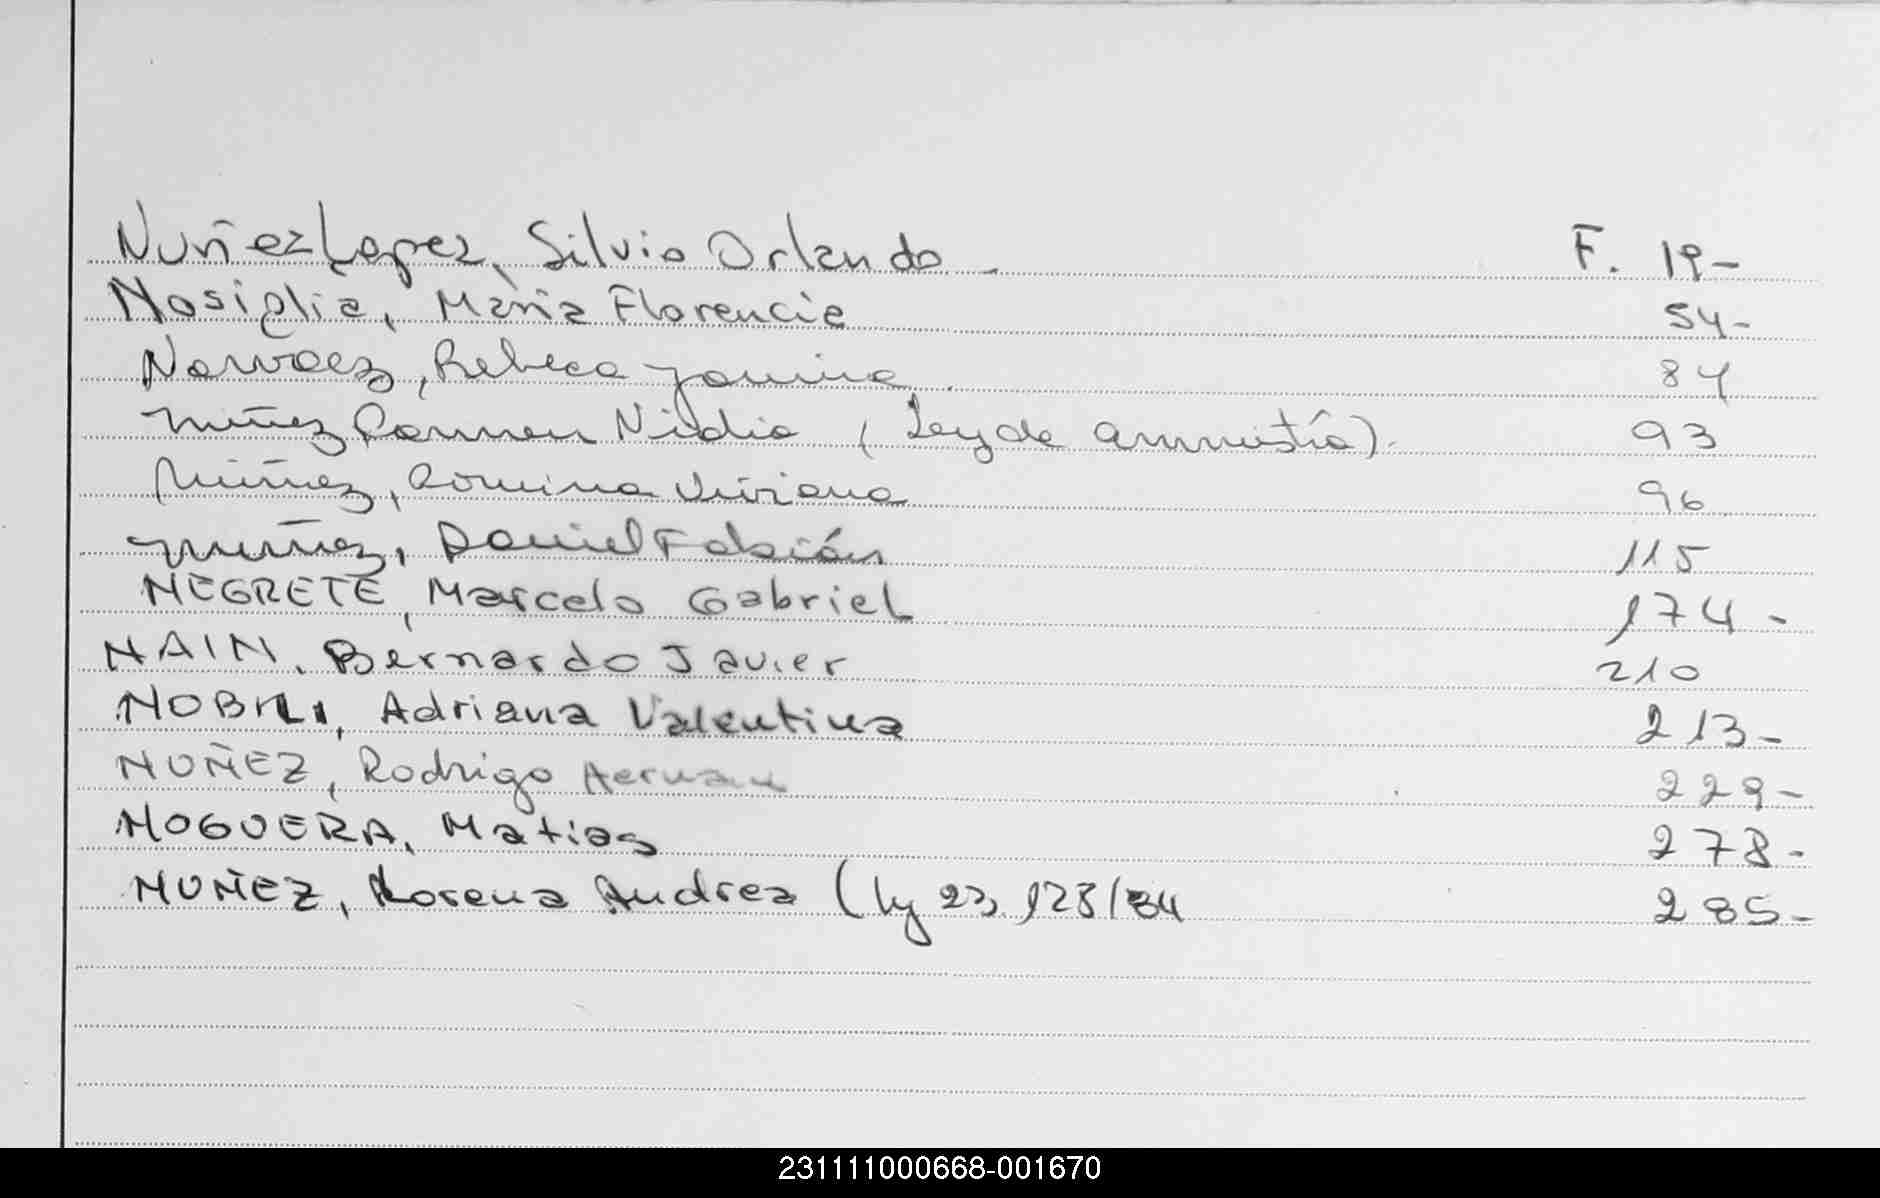 Nuñez Lopez, Silvio Orlando - F. 19-
Nosiglia, Maria Florencia 54-
Narvaez, Rebeca Yanina. 84
Núñez Carmen Nidia (Ley de amnistía). 93
Núñez, Romina Viviana 96
Núñez, Daniel Fabián 115
NEGRETE, Marcelo Gabriel 174-
NAIN, Bernardo Javier 210
NOBILI, Adriana Valentina 213-
NUÑEZ, Rodrigo Hernan 229-
NOGUERA, Matias 278-
NUÑEZ, Lorena Andrea (ly 23.128/84 285-
231111000668-001670